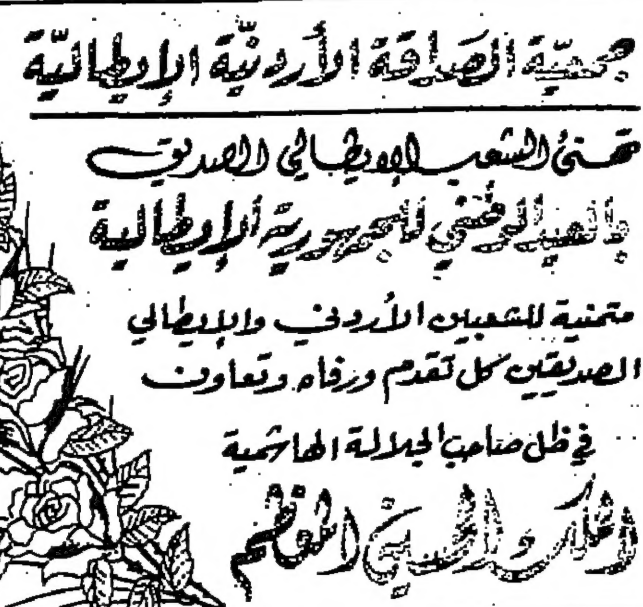 جمعيّة الصَداقة الأردنيّة الإيطاليّة
تهنئ الشعب الإيطالي الصديق
بالعيد الوطني للجمهورية الإيطالية
متمنية للشعبين الأردني والإيطالي
الصديقين كل تقدم ورفاه وتعاون
في ظل صاحب الجلالة الهاشمية
الملك الحسين المعظم